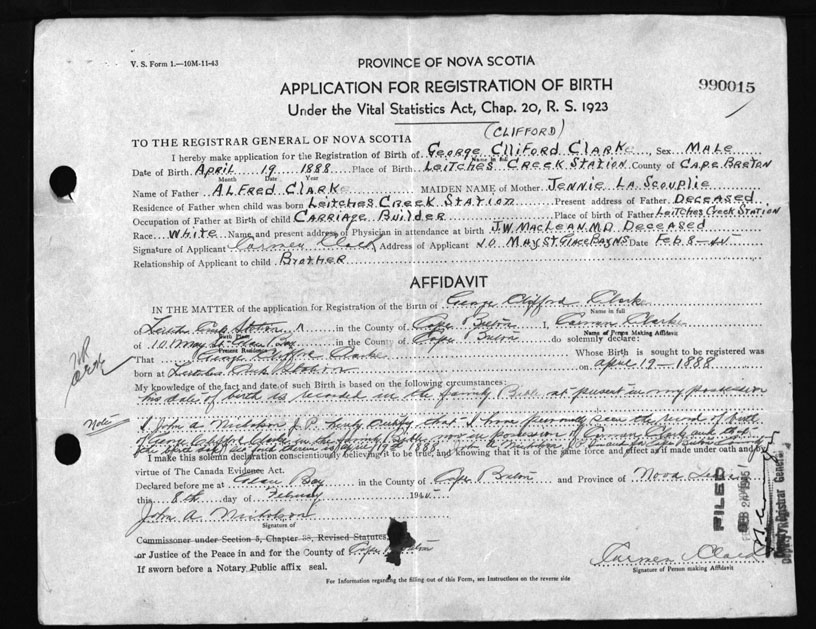 V. S. Form 1.—10M-11-43
PROVINCE OF NOVA SCOTIA
APPLICATION FOR REGISTRATION OF BIRTH
990015
Under the Vital Statistics Act, Chap. 20, R. S. 1923
(CLIFFORD)
TO THE REGISTRAR GENERAL OF NOVA SCOTIA
I hereby make application for the Registration of Birth of George Cliford Clarke, Sex Male
Name in full
Date of Birth April 19 1888 Place of Birth Leitches Creek Station County of Cape Breton
Month Date Year
Name of Father Alfred Clarke MAIDEN NAME of Mother Jennie La Scouplie
Residence of Father when child was born Leitches Creek Station Present address of Father Deceased
Occupation of Father at Birth of child Carriage Builder Place of birth of Father Leitches Creek Station
Race White Name and present address of Physician in attendance at birth J.W. MacLean M.D. Deceased
Signature of Applicant Carmen Clark Address of Applicant 10 May St Glace Bay NS Date Feb 8-45
Relationship of Applicant to child Brother
AFFIDAVIT
IN THE MATTER of the application for Registration of the Birth of George Clifford Clarke
Name in full
of Leitches Creek Station in the County of Cape Breton I, Carmen Clarke
Birth Place
Name of Person Making Affidavit
of 10 May St. Glace Bay in the County of Cape Breton do solemnly declare:
Present Residence
That George Clifford Clarke Whose Birth is sought to be registered was
born at Leitches Creek Station on April 19-1888
My knowledge of the fact and date of such Birth is based on the following circumstances:
his date of birth is recorded in the family Bible at present in my possession
Note
I John A Nicholson J.P. hereby certify that I have personally seen the record of birth
of George Clifford Clarke in the family Bible now in possession of Carmen Clark and that
I make this solemn declaration conscientiously believing it to be true, and knowing that it is of the same force and effect as if made under oath and by
virtue of The Canada Evidence Act.
Declared before me at Glace Bay in the County of Cape Breton and Province of Nova Scotia
this 8th day of February 1945
John A Nicholson
Signature of
Commissioner under Section 5, Chapter 38, Revised Statutes
or Justice of the Peace in and for the County of Cape Breton
If sworn before a Notary Public affix seal.
Carmen Clark
Signature of Person making Affidavit
For Information regarding the filling out of this Form, see Instructions on the reverse side
FILED
Deputy Registrar General